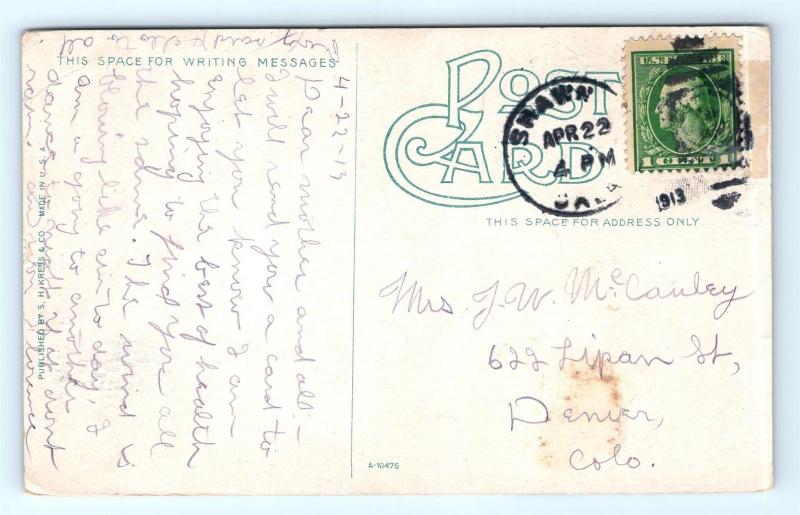 THIS SPACE FOR WRITING MESSAGES
4-22-13
Dear mother and all:-
I will send you a card to
let you know I am
enjoying the best of health
hoping to find you all
the same. The wind is
blowing like sin to day, I
am a going to another
dance to night if it dont
rain.
to all
PUBLISHED BY S. H. KRESS & CO. MADE IN U. S. A.
POST
CARD
SHAWN
APR 22
4 PM
OKLA
1913
U.S. POSTAGE
1 CENT 1
THIS SPACE FOR ADDRESS ONLY
Mrs. J. W. McCauley
622 Lipan St,
Denver,
Colo.
A-10475